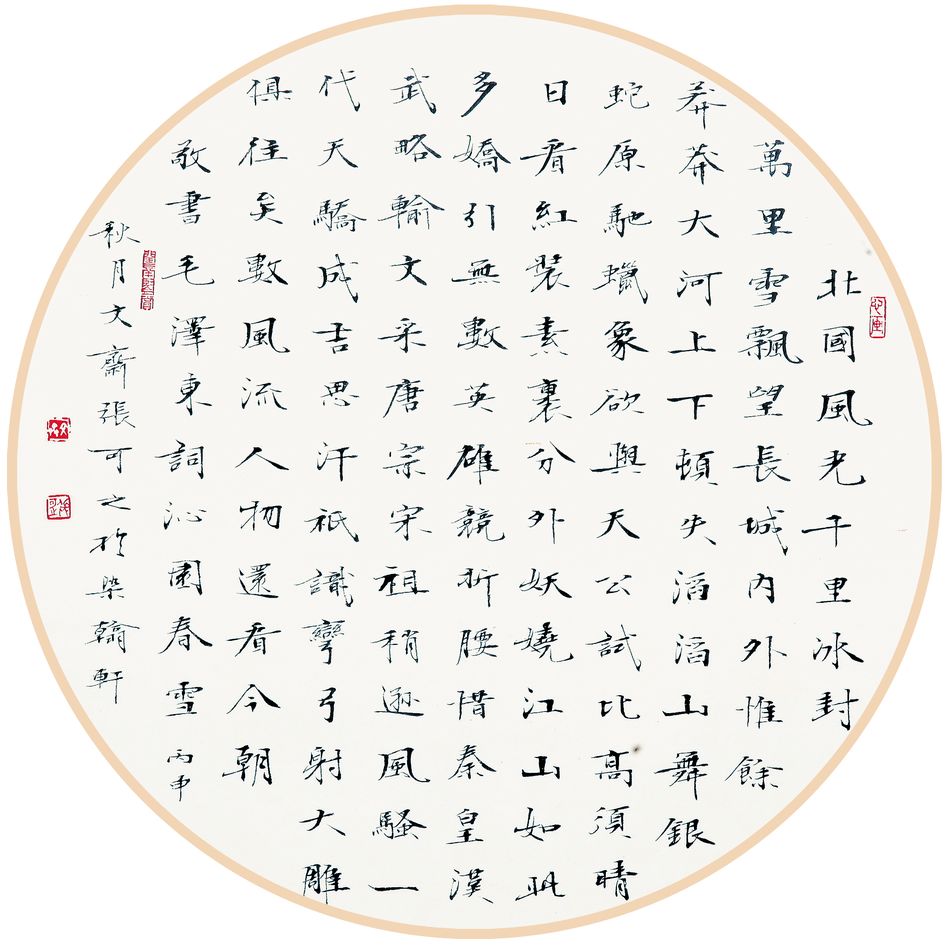 北國風光千里冰封
萬里雪飄望長城內外惟餘
莽莽大河上下頓失滔滔山舞銀
蛇原馳蠟象欲與天公試比高須晴
日看紅裝素裹分外妖嬈江山如此
多嬌引無數英雄競折腰惜秦皇漢
武略輸文采唐宗宋祖稍遜風騷一
代天驕成吉思汗祇識彎弓射大雕
俱往矣數風流人物還看今朝
敬書毛澤東詞沁園春雪丙申
秋月文齋張可之於染翰軒